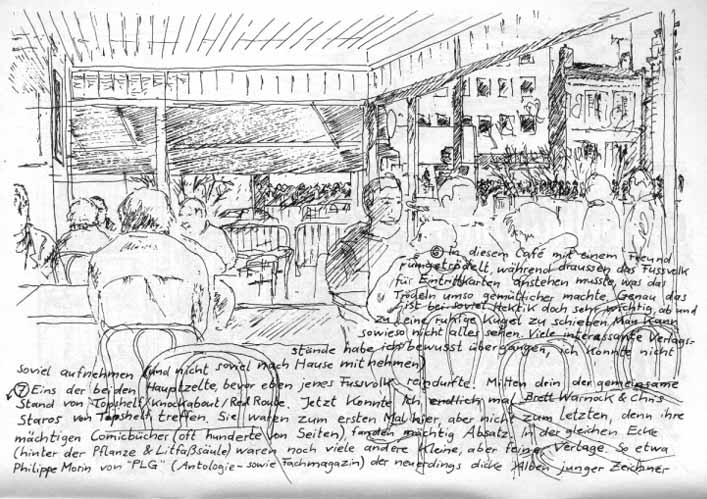 ⑥ In diesem Café mit einem Freund
rumgetrödelt, während draussen das Fussvolk
für Eintrittkarten anstehen musste, was das
Trödeln umso gemütlicher machte. Genau das
ist bei soviel Hektik doch sehr wichtig, ab und
zu eine ruhige Kugel zu schieben. Man kann
sowieso nicht alles sehen. Viele interessante Verlags-
stände habe ich bewusst übergangen, ich konnte nicht
soviel aufnehmen (und nicht soviel nach Hause mitnehmen)
⑦ Eins der beiden Hauptzelte, bevor eben jenes Fussvolk reindurfte. Mitten drin der gemeinsame
Stand von Topshelf/Knockabout/Red Route. Jetzt konnte ich endlich mal Brett Warnock & Chris
Staros von Topshelf treffen. Sie waren zum ersten Mal hier, aber nicht zum letzten, denn ihre
mächtigen Comicbücher (oft hunderte von Seiten) fanden mächtig Absatz. In der gleichen Ecke
(hinter der Pflanze & Litfaßsäule) waren noch viele andere kleine, aber feine Verlage. So etwa
Philippe Morin von "PLG" (Antologie- sowie Fachmagazin) der neuerdings dicke Alben junger Zeichner